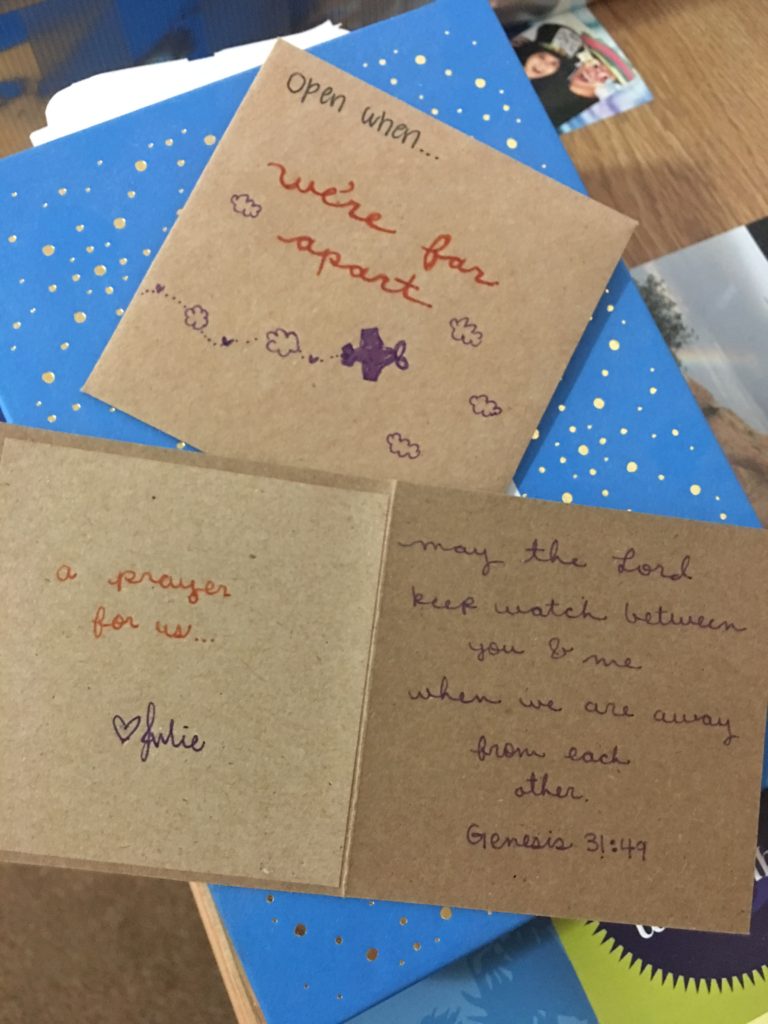 Open when...
we're far
apart
a prayer
for us...
♡ Julie
may the Lord
keep watch between
you & me
when we are away
from each
other.
Genesis 31:49